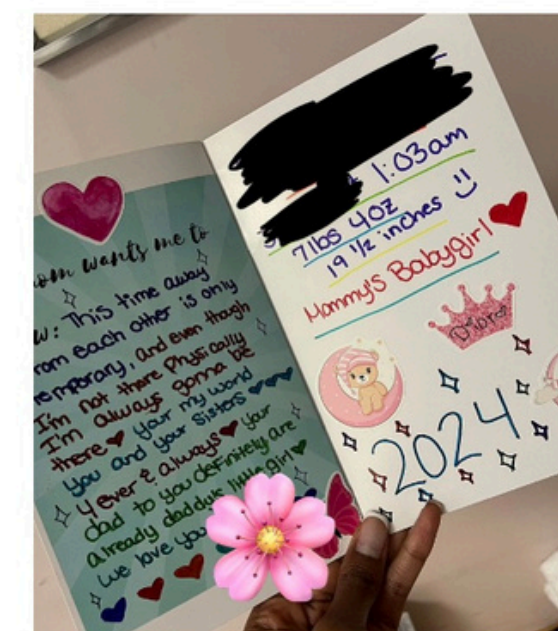 om wants me to
w: This time away
rom each other is only
emporary, and even though
I'm not there physically
I'm always gonna be
there your my world
you and your sisters
4 ever & always your
dad to you definitely are
already daddy's little girl
we love you
1:03am
7lbs 4oz
19 1/2 inches
Mommy's Babygirl
2024